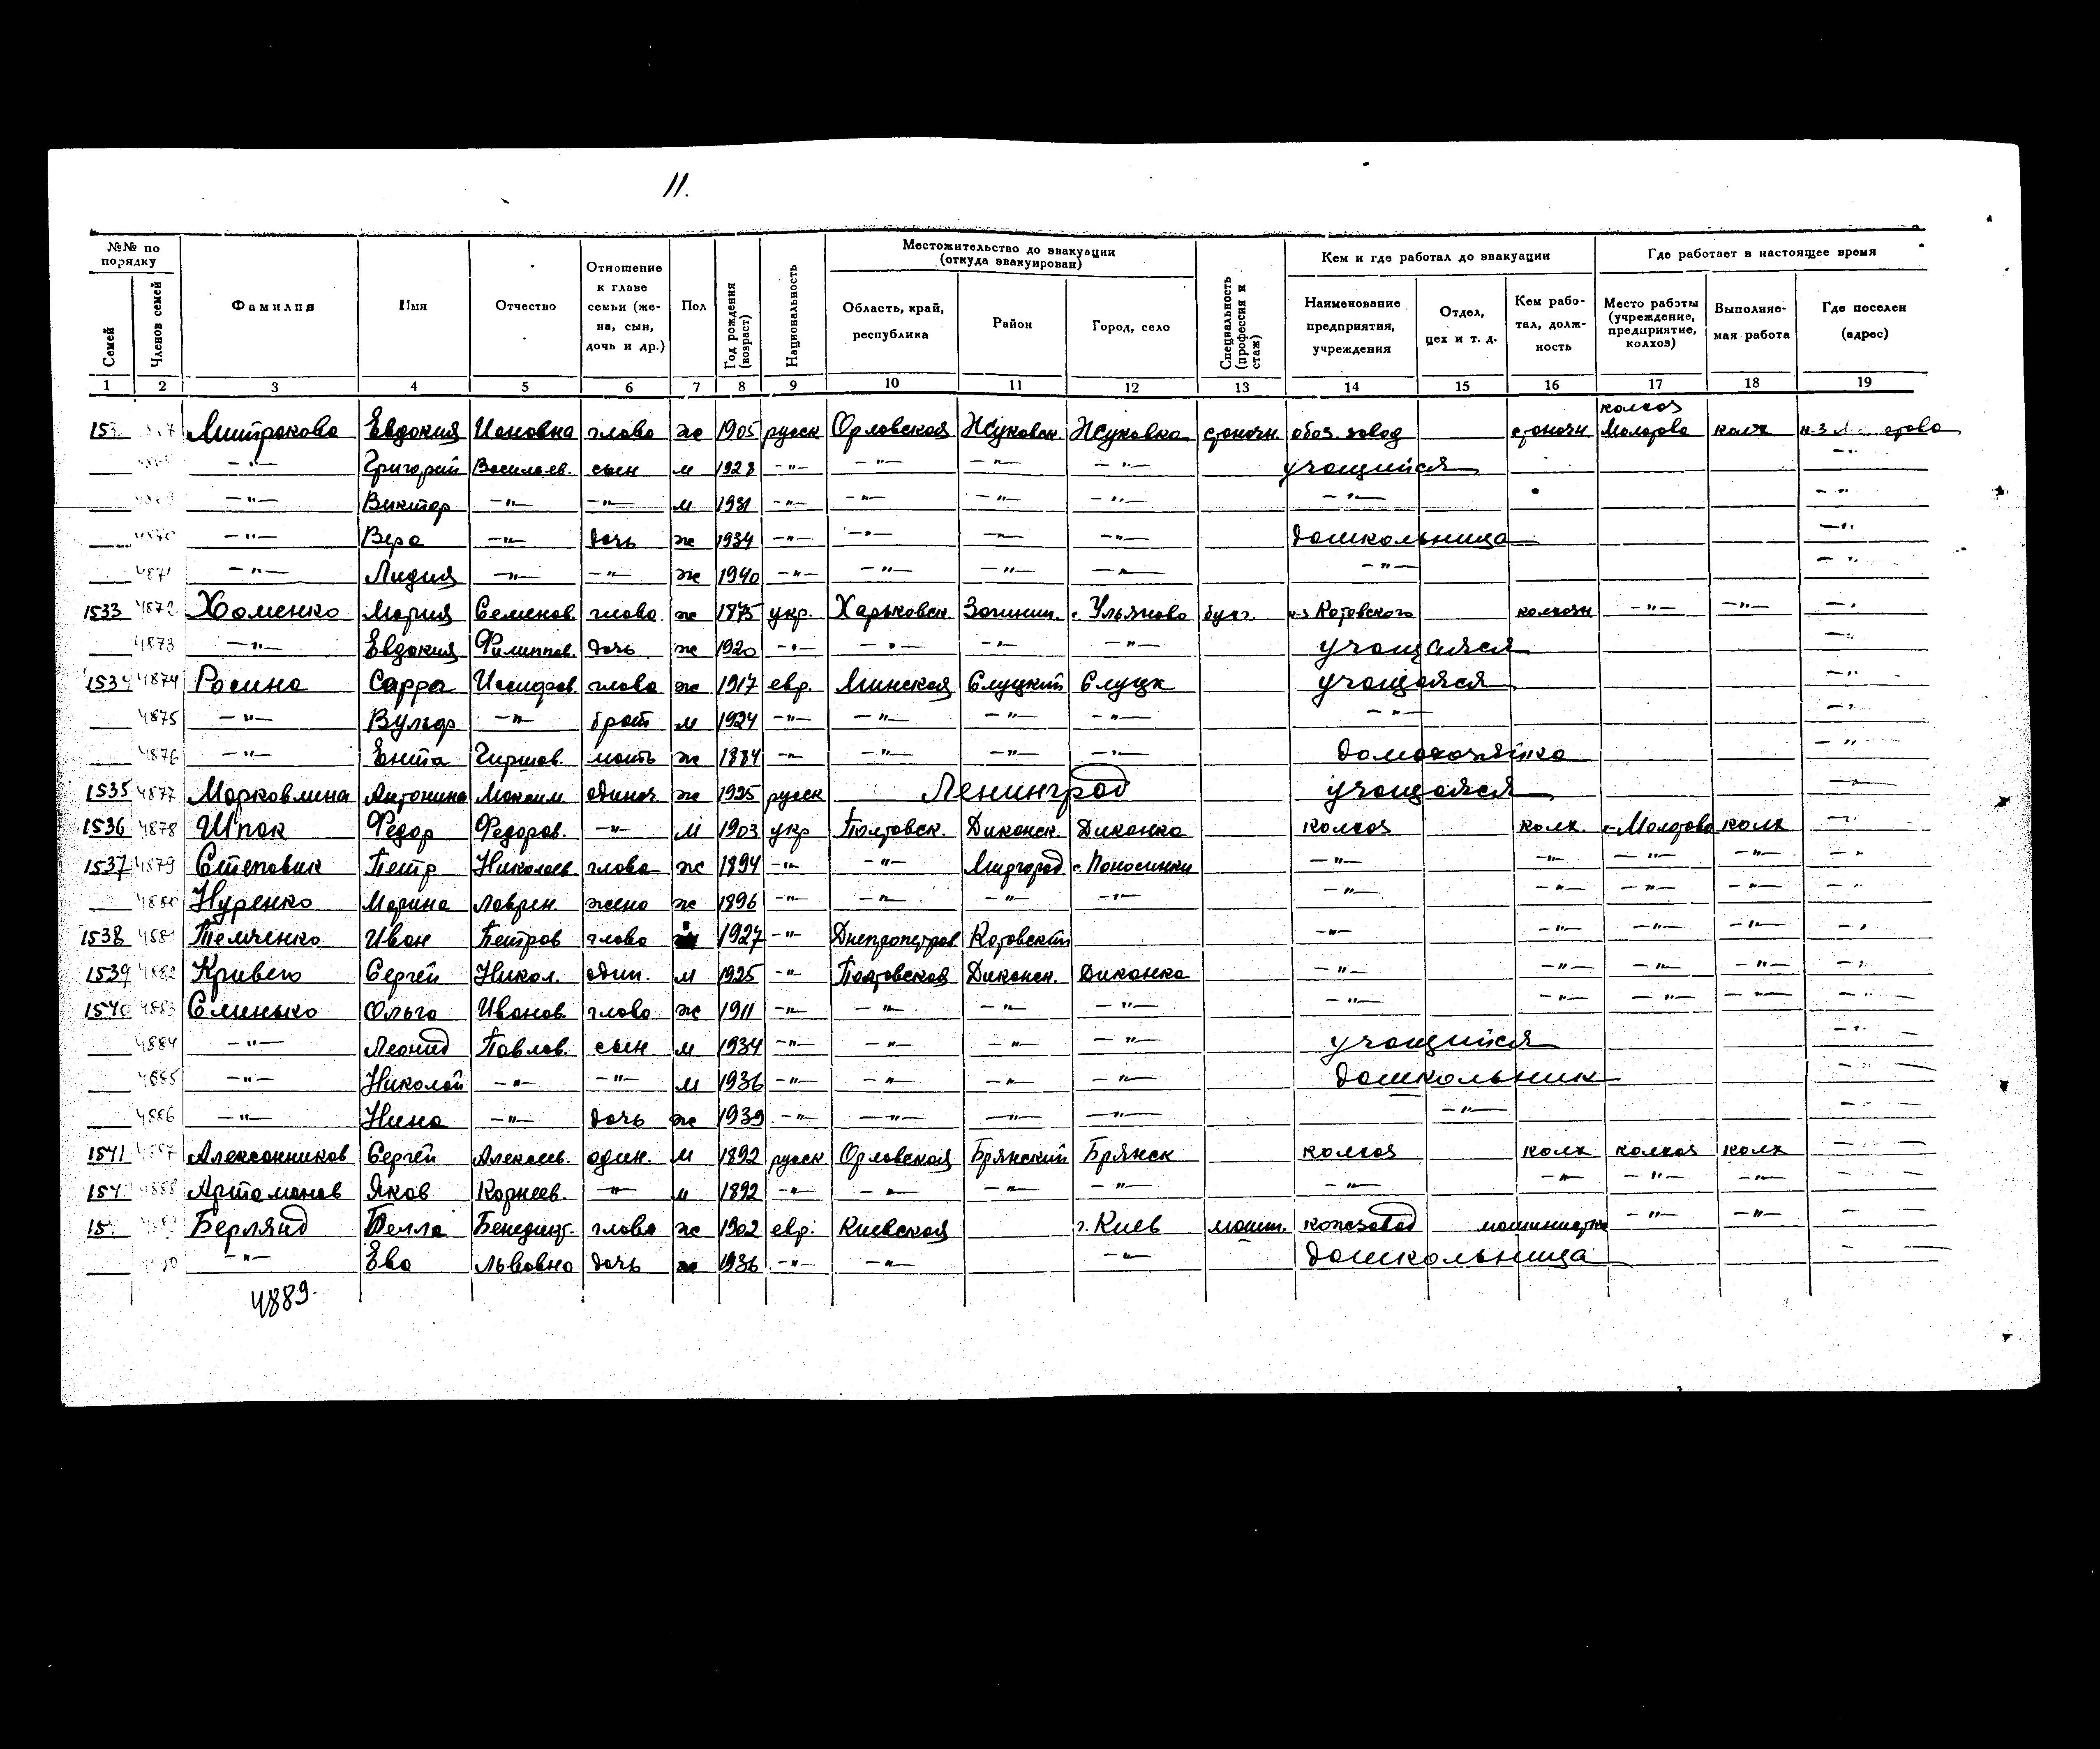 11.
№№ по порядку
Семей
Членов семей
Фамилия
Имя
Отчество
Отношение к главе семьи (жена, сын, дочь и др.)
Пол
Год рождения (возраст)
Национальность
Местожительство до эвакуации (откуда эвакуирован)
Область, край, республика
Район
Город, село
Специальность (профессия и стаж)
Кем и где работал до эвакуации
Наименование предприятия, учреждения
Отдел, цех и т. д.
Кем работал, должность
Где работает в настоящее время
Место работы (учреждение, предприятие, колхоз)
Выполняемая работа
Где поселен (адрес)
1 2 3 4 5 6 7 8 9 10 11 12 13 14 15 16 17 18 19
Митракова Евдокия Ионовна глава ж 1905 русск Орловская Жуковск Жуковка станочн. обоз. завод станочн колхоз Молотова колх
—"— Григорий Васильев. сын м 1928 —"— —"— —"— —"— учащийся —"—
—"— Виктор —"— —"— м 1931 —"— —"— —"— —"— —"— —"—
4870 —"— Вера —"— дочь ж 1934 —"— —"— —"— —"— дошкольница —"—
4871 —"— Лидия —"— —"— ж 1940 —"— —"— —"— —"— —"— —"—
1533 4872 Хоменко Мария Семенов. глава ж 1875 укр. Харьковск. с. Ульяново к-з Котовского колхозн —"— —"— —"—
4873 —"— Евдокия Филиппов. дочь ж 1920 —"— —"— —"— —"— учащаяся —"—
1534 4874 Росина Сарра Иосифов. глава ж 1917 евр. Минская Слуцкий Слуцк учащаяся —"—
4875 —"— Вульф —"— брат м 1924 —"— —"— —"— —"— —"— —"—
4876 —"— Ента Гиршов. мать ж 1884 —"— —"— —"— —"— домохозяйка —"—
1535 4877 Морковлина Антонина Максим. одиноч. ж 1925 русск Ленинград учащаяся —"—
1536 4878 Шпак Федор Федоров. —"— м 1903 укр Полтовск. Диканск. Диканка колхоз колх. к-з Молотова колх —"—
1537 4879 Степовик Петр Николаев глава ж 1894 —"— —"— Миргород —"— —"— —"— —"— —"—
4880 Нуренко Марина Лаврен. жена ж 1896 —"— —"— —"— —"— —"— —"— —"— —"— —"—
1538 4881 Темченко Иван Петров глава 1927 —"— Днепропетров. Котовский —"— —"— —"— —"— —"—
1539 4882 Сергей Никол. один. м 1925 —"— Полтовская Диканск. Диканка —"— —"— —"— —"— —"—
1540 4883 Слинько Ольга Иванов. глава ж 1911 —"— —"— —"— —"— —"— —"— —"— —"— —"—
4884 —"— Леонид Павлов. сын м 1934 —"— —"— —"— —"— учащийся —"—
4885 —"— Николай —"— —"— м 1936 —"— —"— —"— —"— дошкольник —"—
4886 —"— Нина —"— дочь ж 1939 —"— —"— —"— —"— —"— —"—
1541 4887 Алексанников Сергей Алексеев. один. м 1892 русск Орловская Брянский Брянск колхоз колх колхоз колх —"—
4888 Артамонов Яков Корнеев. —"— м 1892 —"— —"— —"— —"— —"— —"— —"— —"—
Берлянд Белла Бенедикт. глава ж 1902 евр. Киевская г. Киев машин. кожзавод машинистка —"— —"—
—"— Ева Львовна дочь ж 1936 —"— —"— —"— дошкольница
4889.